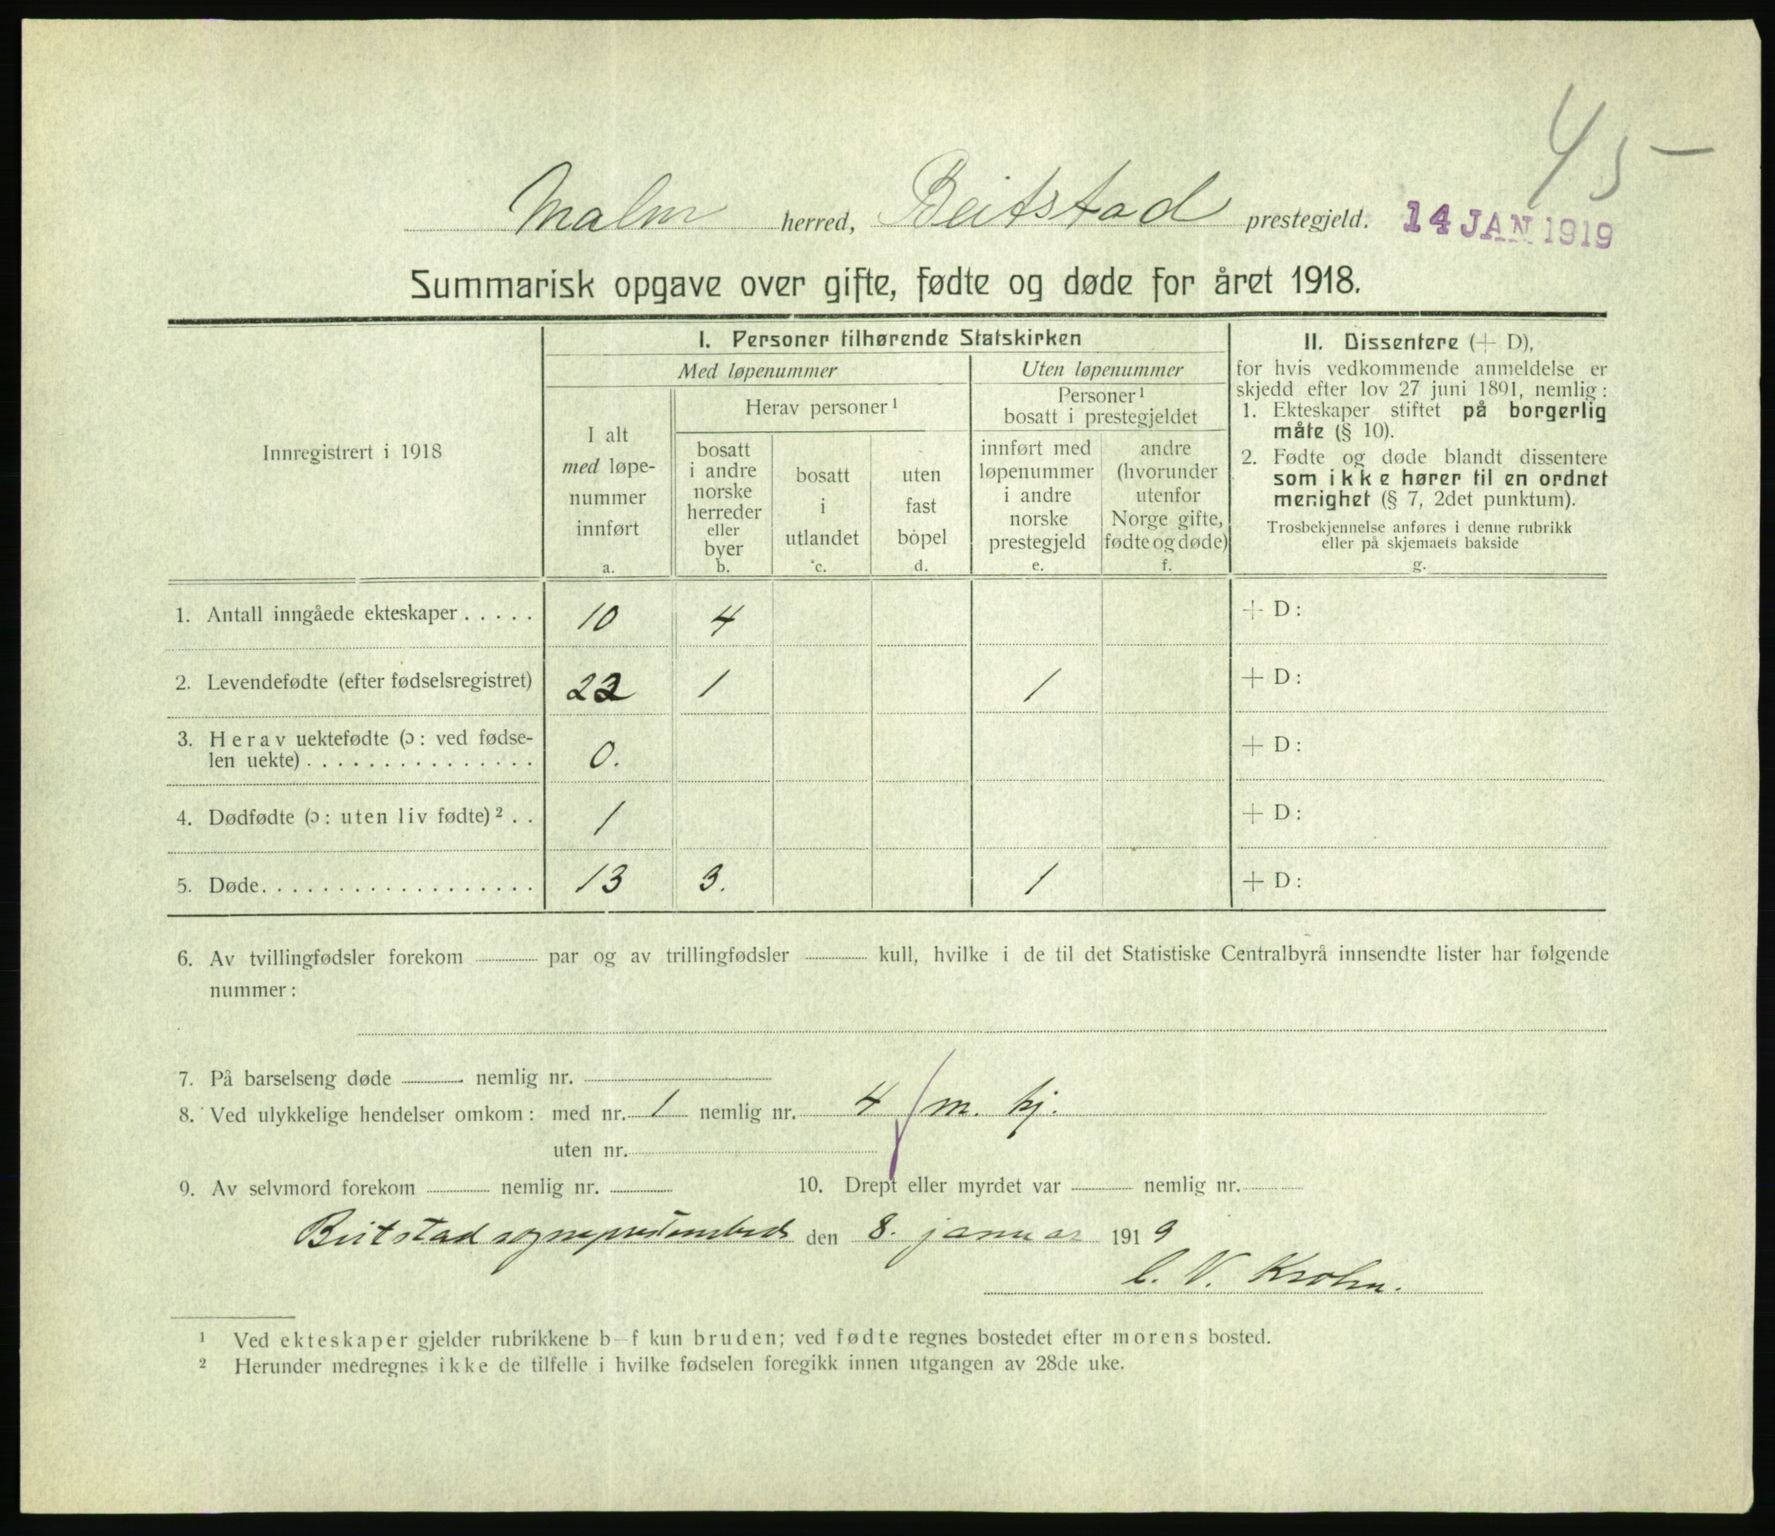 45
Malm herred, Beitstad prestegjeld. 14 JAN 1919
Summarisk opgave over gifte, fødte og døde for året 1918.
Innregistrert i 1918
I. Personer tilhørende Statskirken
Med løpenummer
Uten løpenummer
I alt
med løpe-
nummer
innført
a.
Herav personer ¹
bosatt
i andre
norske
herreder
eller
byer
b.
bosatt
i
utlandet
c.
uten
fast
bopel
d.
Personer ¹
bosatt i prestegjeldet
innført med
løpenummer
i andre
norske
prestegjeld
e.
andre
(hvorunder
utenfor
Norge gifte,
fødte og døde)
f.
II. Dissentere (+ D),
for hvis vedkommende anmeldelse er
skjedd efter lov 27 juni 1891, nemlig:
1. Ekteskaper stiftet på borgerlig
måte (§ 10).
2. Fødte og døde blandt dissentere
som ikke hører til en ordnet
menighet (§ 7, 2det punktum).
Trosbekjennelse anføres i denne rubrikk
eller på skjemaets bakside
g.
1. Antall inngåede ekteskaper . . . . . 10 4 + D:
2. Levendefødte (efter fødselsregistret) 22 1 1 + D:
3. Herav uektefødte (ɔ: ved fødse-
len uekte) . . . . . . . . . . . . . . . 0. + D:
4. Dødfødte (ɔ: uten liv fødte) ² . . 1 + D:
5. Døde. . . . . . . . . . . . . . . . . . 13 3. 1 + D:
6. Av tvillingfødsler forekom par og av trillingfødsler kull, hvilke i de til det Statistiske Centralbyrå innsendte lister har følgende
nummer:
7. På barselseng døde nemlig nr.
8. Ved ulykkelige hendelser omkom: med nr. 1 nemlig nr. 4 / m. kj.
uten nr.
9. Av selvmord forekom nemlig nr. 10. Drept eller myrdet var nemlig nr.
Beitstad sogneprestembede den 8. januar 1919
C. V. Krohn.
¹ Ved ekteskaper gjelder rubrikkene b–f kun bruden; ved fødte regnes bostedet efter morens bosted.
² Herunder medregnes ikke de tilfelle i hvilke fødselen foregikk innen utgangen av 28de uke.